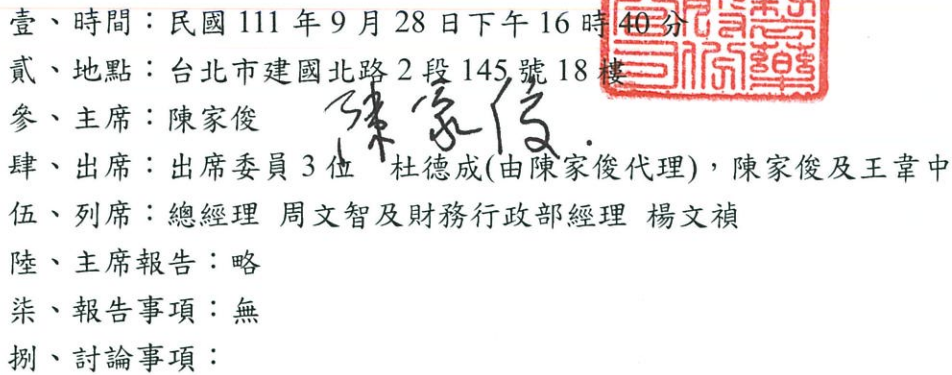 壹、時間：民國 111 年 9 月 28 日下午 16 時 40 分
貳、地點：台北市建國北路 2 段 145 號 18 樓
參、主席：陳家俊 陳家俊
肆、出席：出席委員 3 位 杜德成(由陳家俊代理)，陳家俊及王韋中
伍、列席：總經理 周文智及財務行政部經理 楊文禎
陸、主席報告：略
柒、報告事項：無
捌、討論事項：